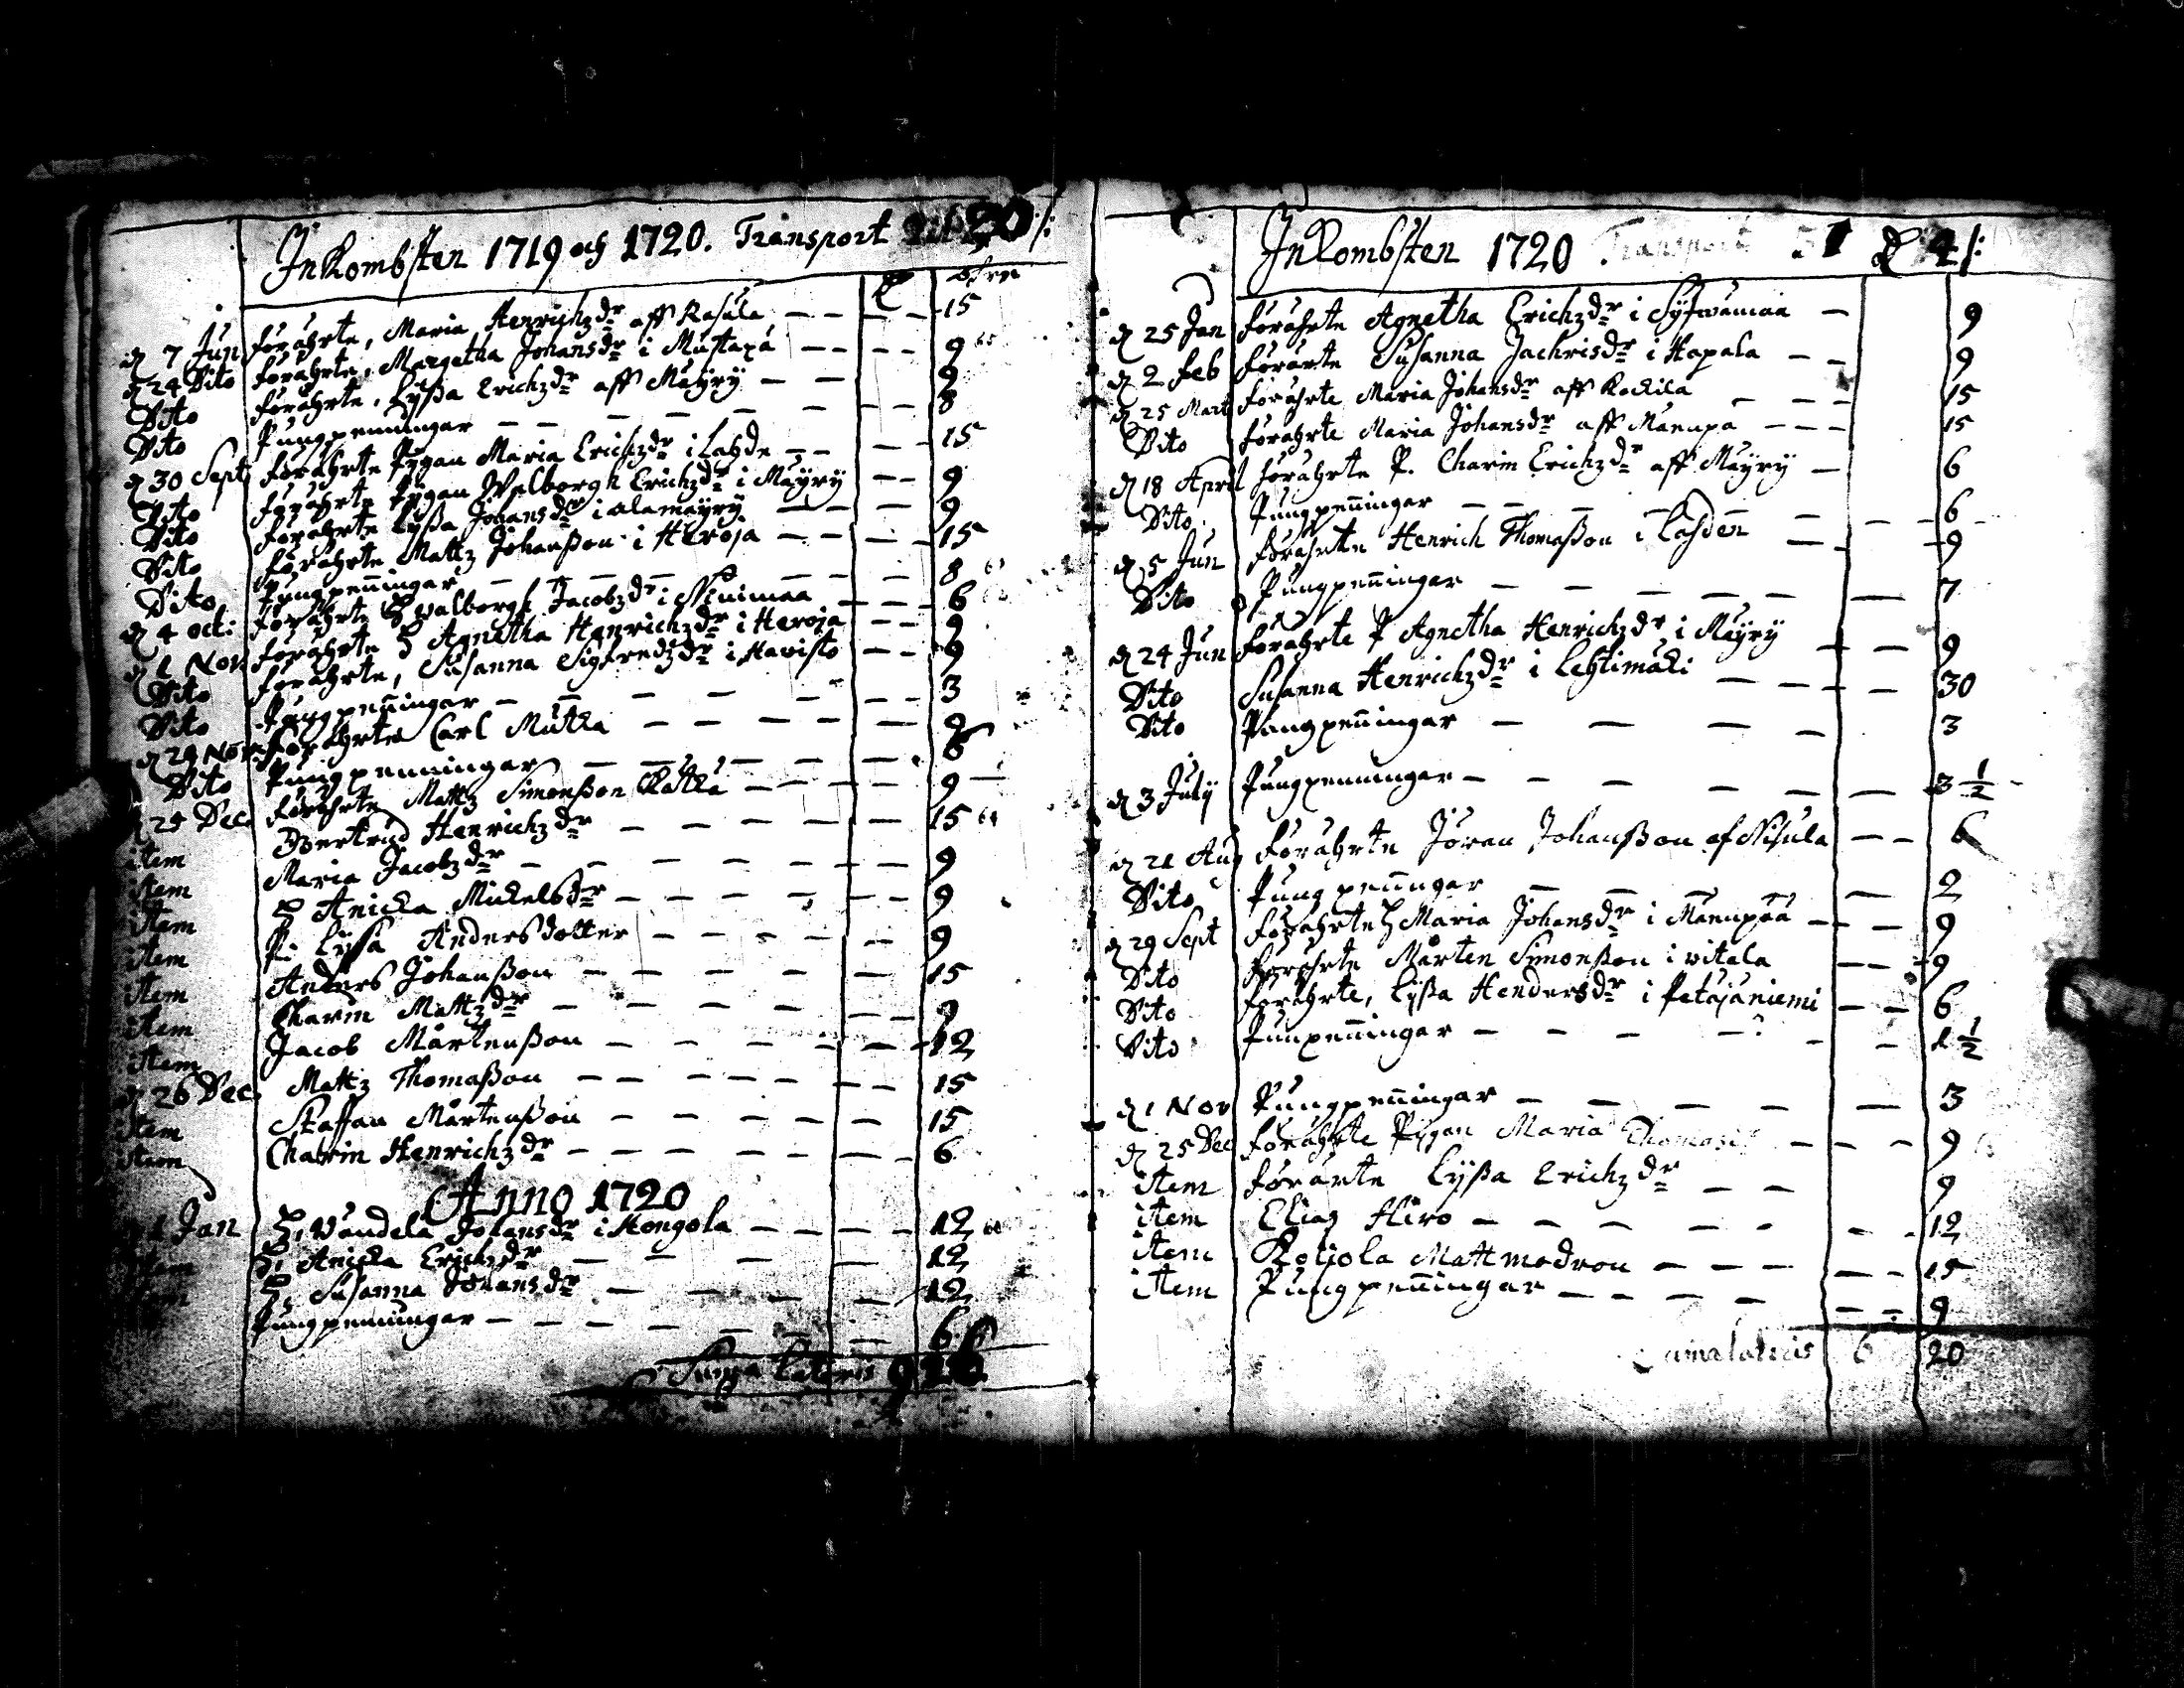 Inkombsten 1719 och 1720. Transport 20/:
öhre
d 7 Jun förährte, Maria Henrichzdr aff Kasula 15
d 24 Dito förährte, Margetha Johansdr i Mustapä 9
Dito förährte, Lyßa Erichzdr aff Mäyry 9
Dito Pungpenningar 8
d 30 Sept förährte Pygan Maria Erichzdr i Lahde 15
Dito förährte Pygan Walborgh Erichzdr i Mäyry 9
Dito förährte Lyßa Johansdr i alamäyry 9
Dito förährte Mattz Johanßon i Heroja 15
Dito Pungpenningar 8
d 4 Oct: förährte Walborgh Jacobzdr i Niuimaa 6
d 1 Nov förährte Agnetha Henrichzdr i Heroja 9
Dito förährte, Susanna Sigfredzdr i Havisto 9
Dito Pungpenningar 3
d 29 Nov förährte Carl Mutka 9
Dito Pungpenningar 6
d 25 Dec förährte Mattz Simonßon 9
item Bertrud Henrichzdr 15
item Maria Jacobzdr 9
item Anicka Mickelsdr 9
item P. Lyssa Andersdotter 9
item Anders Johanßon 15
item Charin Mattzdr 9
item Jacob Mårtenßon 12
d 26 Dec Mattz Thomaßon 15
item Staffan Mårtenßon 15
item Chatrin Henrichzdr 6
Anno 1720
1 Jan Vandela Johansdr i Hongola 12
item Anicka Erichzdr 12
item Susanna Johansdr 12
Pungpenningar 6
Summa Lateris 9
Inkombsten 1720 Transport 4/:
d 25 Jan förährte Agnetha Erichzdr i Syswämaa 9
d 2 Feb förärte Susanna Jachrisdr i Hapala 9
d 25 Mart förährte Maria Johansdr aff Kockila 15
Dito förährte Maria Johansdr aff Mänupä 15
d 18 April förährte P. Charin Erichzdr aff Mäyry 6
Dito Pungpenningar 6
d 5 Jun förährte Henrich Thomaßon i Lahden 9
Dito Pungpenningar 7
d 24 Jun förährte P Agnetha Henrichzdr i Mäyry 9
Dito Susanna Henrichzdr i Lehtimäki 30
Dito Pungpenningar 3
d 3 July Pungpenningar 3 1/2
d 21 Aug förährte Jöran Johanßon af Nisula 6
Dito Pungpenningar 2
d 29 Sept förährte Maria Johansdr i Mänupää 9
Dito förährte Mårten Simonßon i vitala 9
Dito förährte, Lyßa Hendersdr i Petäjäniemi 6
Dito Punpenningar 1 1/2
d 1 Nov Pungpenningar 3
d 25 Dec förährte Pygan Maria 9
item förärte Lyßa Erichzdr 9
item Elias Hiro 12
item Koliola Matt modron 15
item Pungpenningar 9
6 20